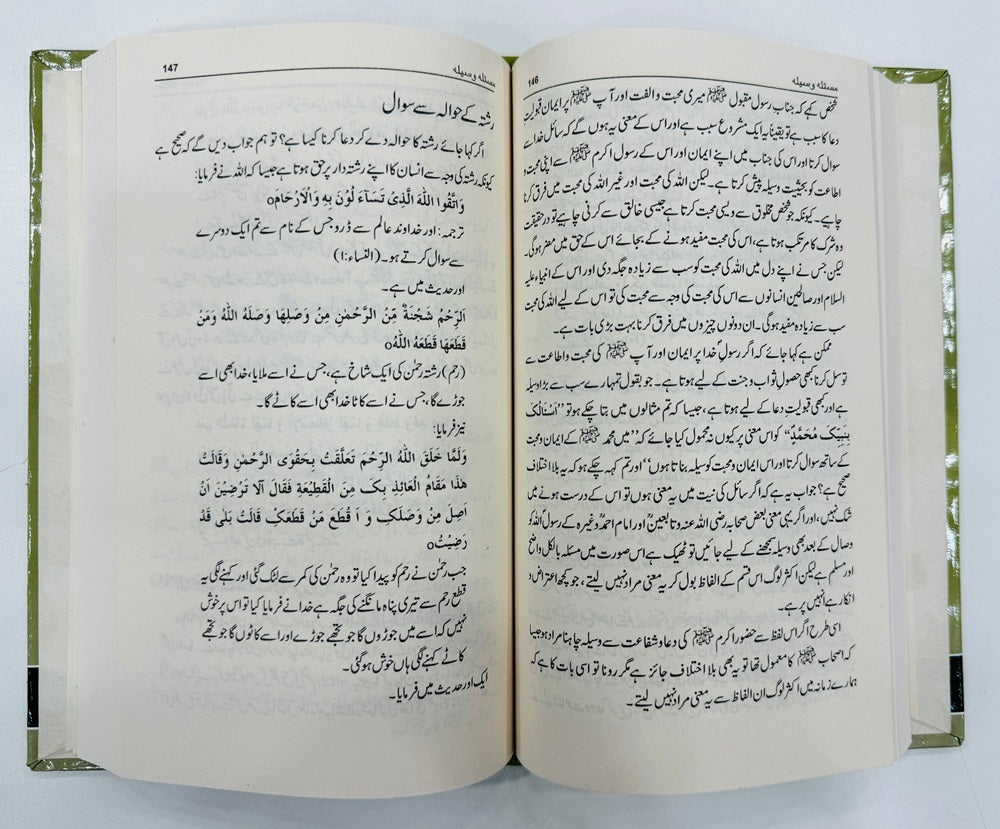 مسئلہ وسیلہ 146
شخص کہے کہ جناب رسول مقبول ﷺ میری محبت والفت اور آپ ﷺ پر ایمان قبولیت
دعا کا سبب ہے تو یقیناً یہ ایک مشروع سبب ہے اور اس کے معنی یہ ہوں گے کہ سائل خدا سے
سوال کرتا اور اس کی جناب میں اپنے ایمان اور اس کے رسول اکرم ﷺ سے اپنی محبت و
اطاعت کو بحیثیت وسیلہ پیش کرتا ہے۔ لیکن اللہ کی محبت اور غیر اللہ کی محبت میں فرق کرنا
چاہیے۔ کیونکہ جو شخص مخلوق سے ویسی محبت کرتا ہے جیسی خالق سے کرنی چاہیے تو درحقیقت
وہ شرک کا مرتکب ہوتا ہے، اس کی محبت مفید ہونے کے بجائے اس کے حق میں مضر ہوگی۔
لیکن جس نے اپنے دل میں اللہ کی محبت کو سب سے زیادہ جگہ دی اور اس کے انبیاء علیہ
السلام اور صالحین انسانوں سے اس کی محبت کی وجہ سے محبت کی تو اس کے لیے اللہ کی محبت
سب سے زیادہ مفید ہوگی۔ ان دونوں چیزوں میں فرق کرنا بہت بڑی بات ہے۔
ممکن ہے کہا جائے کہ اگر رسولِ خدا پر ایمان اور آپ ﷺ کی محبت واطاعت سے
توسل کرنا کبھی حصولِ ثواب وجنت کے لیے ہوتا ہے۔ جو بقول تمہارے سب سے بڑا وسیلہ
ہے اور کبھی قبولیتِ دعا کے لیے ہوتا ہے، جیسا کہ تم مثالوں میں بتا چکے ہو تو ”اَسْئَالُکَ
بِنَبِیِّکَ مُحَمَّدٍ“ کو اس معنی پر کیوں نہ محمول کیا جائے کہ ”میں محمد ﷺ کے ایمان ومحبت
کے ساتھ سوال کرتا اور اس ایمان ومحبت کو وسیلہ بناتا ہوں“ اور تم کہہ چکے ہو کہ یہ بلا اختلاف
صحیح ہے؟ جواب یہ ہے کہ اگر سائل کی نیت میں یہ معنی ہوں تو اس کے درست ہونے میں
شک نہیں، اور اگر یہی معنی بعض صحابہ رضی اللہ عنہ وتابعینؒ اور امام احمدؒ وغیرہ کے رسول اللہ کو
وصال کے بعد بھی وسیلہ سمجھنے کے لیے جائیں تو ٹھیک ہے اس صورت میں مسئلہ بالکل واضح
اور مسلم ہے لیکن اکثر لوگ اس قسم کے الفاظ بول کر یہ معنی مراد نہیں لیتے، جو کچھ اعتراض و
انکار ہے انہیں پر ہے۔
اسی طرح اگر اس لفظ سے حضور اکرم ﷺ کی دعا وشفاعت سے وسیلہ چاہنا مراد ہو جیسا
کہ اصحاب ﷺ کا معمول تھا تو یہ بھی بلا اختلاف جائز ہے مگر رونا تو اسی بات کا ہے کہ
ہمارے زمانہ میں اکثر لوگ ان الفاظ سے یہ معنی مراد نہیں لیتے۔
مسئلہ وسیلہ 147
رشتہ کے حوالہ سے سوال
اگر کہا جائے رشتہ کا حوالہ دے کر دعا کرنا کیسا ہے؟ تو ہم جواب دیں گے کہ صحیح ہے
کیونکہ رشتہ کی وجہ سے انسان کا اپنے رشتہ دار پر حق ہوتا ہے جیسا کہ اللہ نے فرمایا:
وَاتَّقُوا اللّٰہَ الَّذِیْ تَسَآءَ لُوْنَ بِہٖ وَالْاَرْحَامَo
ترجمہ: اور خداوند عالم سے ڈرو جس کے نام سے تم ایک دوسرے
سے سوال کرتے ہو۔ (النساء:۱)
اور حدیث میں ہے۔
اَلرَّحِمُ شَجْنَۃٌ مِّنَ الرَّحْمٰنِ مِنْ وَصَلَھَا وَصَلَہُ اللّٰہُ وَمَنْ
قَطَعَھَا قَطَعَہُ اللّٰہُo
(رحم) رشتہ رحمٰن کی ایک شاخ ہے، جس نے اسے ملایا، خدا بھی اسے
جوڑے گا، جس نے اسے کاٹا خدا بھی اسے کاٹے گا۔
نیز فرمایا:
وَلَمَّا خَلَقَ اللّٰہُ الرَّحِمَ تَعَلَّقَتْ بِحَقْوَی الرَّحْمٰنِ وَقَالَتْ
ھٰذَا مَقَامُ الْعَائِذِ بِکَ مِنَ الْقَطِیْعَۃِ فَقَالَ اَلَا تَرْضِیْنَ اَنْ
اَصِلَ مِنْ وَصَلَکِ وَ اَ قْطَعَ مَنْ قَطَعَکِ قَالَتْ بَلٰی قَدْ
رَضِیْتُo
جب رحمٰن نے رحم کو پیدا کیا تو وہ رحمٰن کی کمر سے لٹک گئی اور کہنے لگی یہ
قطع رحم سے تیری پناہ مانگنے کی جگہ ہے خدا نے فرمایا کیا تو اس پر خوش
نہیں کہ اسے میں جوڑوں گا جو تجھے جوڑے اور اسے کاٹوں گا جو تجھے
کاٹے کہنے لگی ہاں خوش ہوگئی۔
ایک اور حدیث میں فرمایا۔